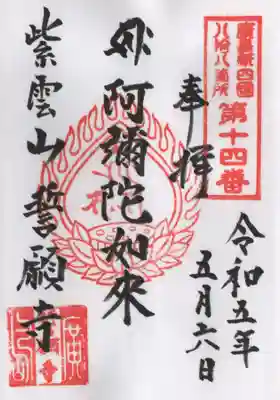 四國
八拾八箇所
第十四番
奉拝
令和五年
五月六日
阿彌陀如來
紫雲山誓願寺